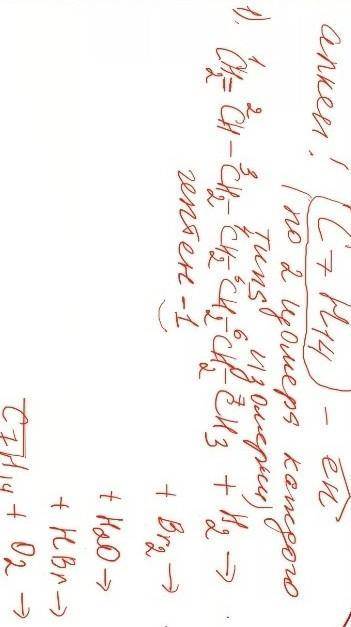 алкен! (C7H14) - ен
по 2 изомера каждого
типа изомерии
1). CH2=CH-CH2-CH2-CH2-CH2-CH3 + H2 →
1 2 3 4 5 6 7
гептен-1
+ Br2 →
+ H2O →
+ HBr →
C7H14 + O2 →